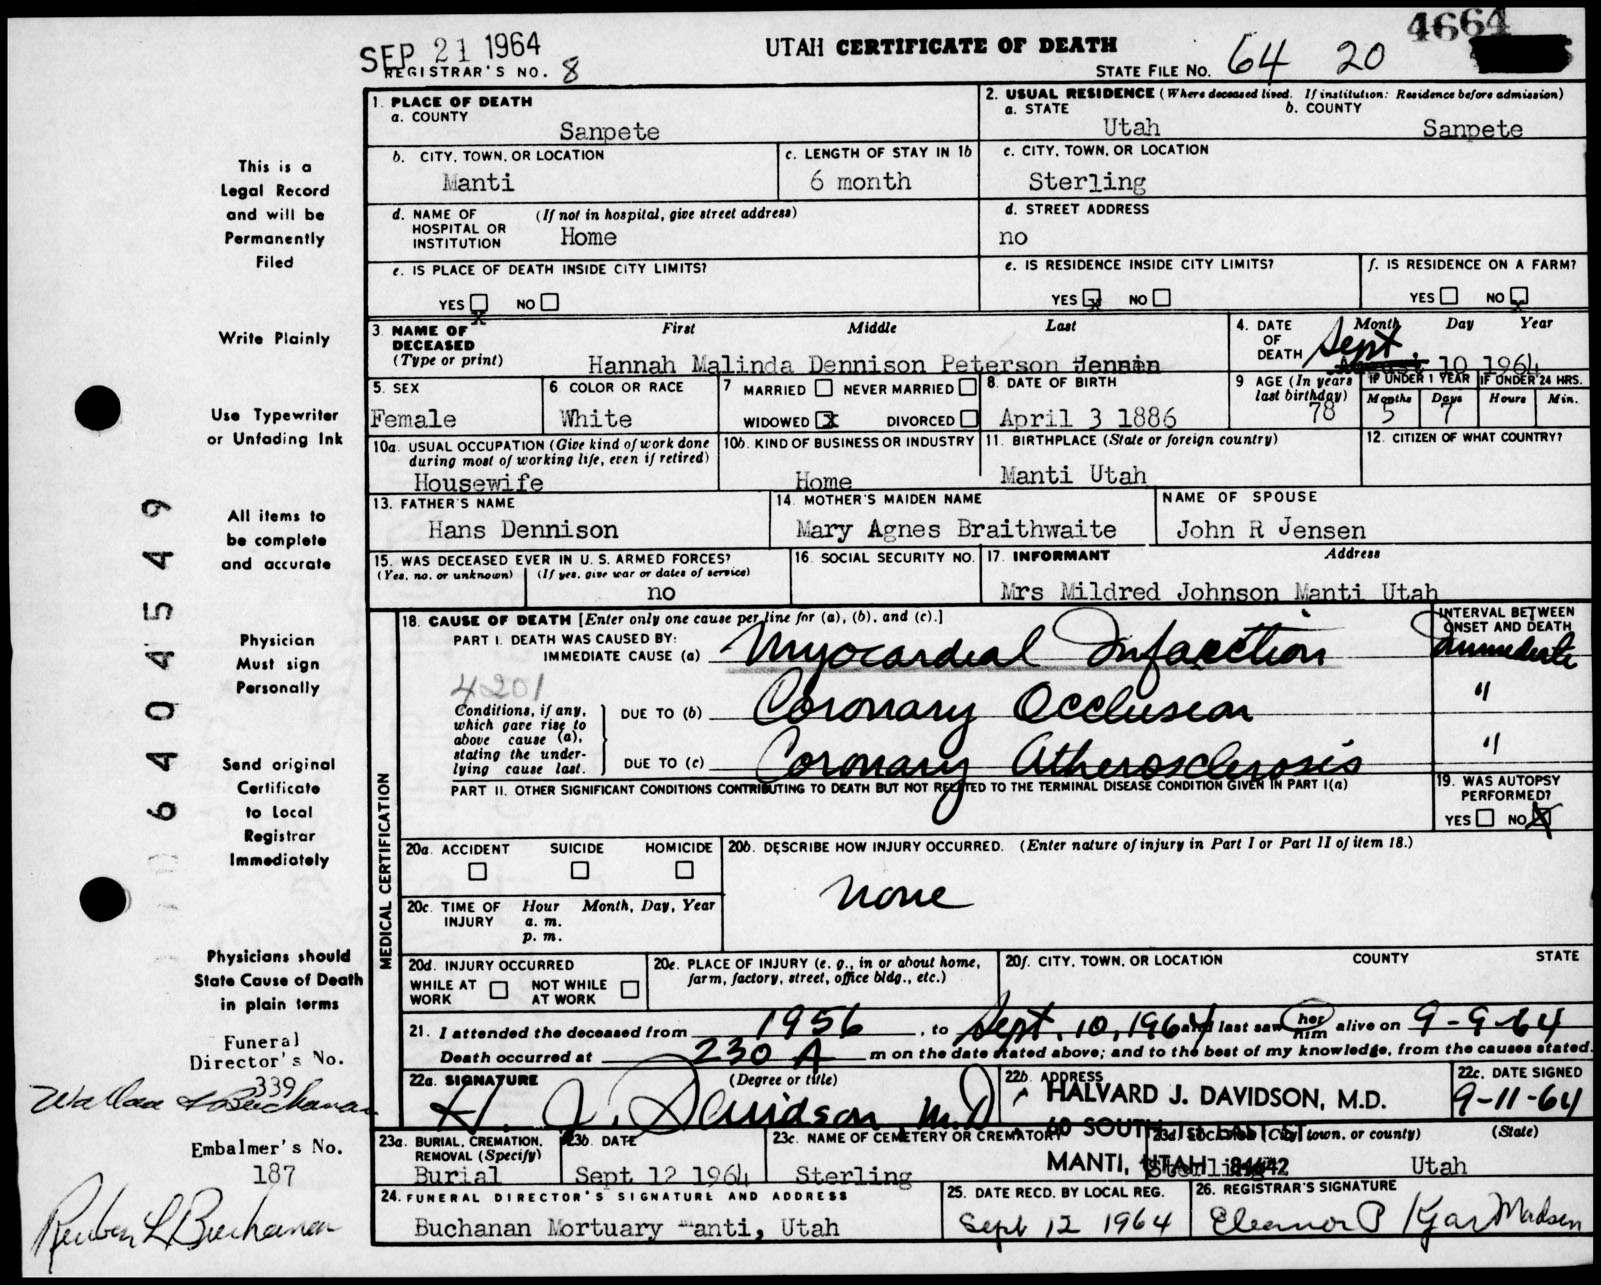 4664
SEP 21 1964
UTAH CERTIFICATE OF DEATH
REGISTRAR'S NO. 8
STATE FILE NO. 64 20
1. PLACE OF DEATH
a. COUNTY
Sanpete
2. USUAL RESIDENCE (Where deceased lived. If institution: Residence before admission)
a. STATE b. COUNTY
Utah Sanpete
b. CITY, TOWN, OR LOCATION
Manti
c. LENGTH OF STAY IN 1b
6 month
c. CITY, TOWN, OR LOCATION
Sterling
d. NAME OF HOSPITAL OR INSTITUTION (If not in hospital, give street address)
Home
d. STREET ADDRESS
no
e. IS PLACE OF DEATH INSIDE CITY LIMITS?
YES x NO
e. IS RESIDENCE INSIDE CITY LIMITS?
YES x NO
f. IS RESIDENCE ON A FARM?
YES NO x
3. NAME OF DECEASED (Type or print)
First Middle Last
Hannah Malinda Dennison Peterson Jensen
4. DATE OF DEATH
Month Day Year
Sept. 10 1964
5. SEX
Female
6 COLOR OR RACE
White
7 MARRIED NEVER MARRIED
WIDOWED x DIVORCED
8. DATE OF BIRTH
April 3 1886
9 AGE (In years last birthday)
78
IF UNDER 1 YEAR
Months Days
5 7
IF UNDER 24 HRS.
Hours Min.
10a. USUAL OCCUPATION (Give kind of work done during most of working life, even if retired)
Housewife
10b. KIND OF BUSINESS OR INDUSTRY
Home
11. BIRTHPLACE (State or foreign country)
Manti Utah
12. CITIZEN OF WHAT COUNTRY?
13. FATHER'S NAME
Hans Dennison
14. MOTHER'S MAIDEN NAME
Mary Agnes Braithwaite
NAME OF SPOUSE
John R Jensen
15. WAS DECEASED EVER IN U.S. ARMED FORCES?
(Yes, no, or unknown) (If yes, give war or dates of service)
no
16. SOCIAL SECURITY NO.
17. INFORMANT Address
Mrs Mildred Johnson Manti Utah
MEDICAL CERTIFICATION
18. CAUSE OF DEATH [Enter only one cause per line for (a), (b), and (c).]
INTERVAL BETWEEN ONSET AND DEATH
PART I. DEATH WAS CAUSED BY:
IMMEDIATE CAUSE (a) Myocardial Infarction Immediate
4201
Conditions, if any, which gave rise to above cause (a), stating the underlying cause last.
DUE TO (b) Coronary Occlusion "
DUE TO (c) Coronary Atherosclerosis "
PART II. OTHER SIGNIFICANT CONDITIONS CONTRIBUTING TO DEATH BUT NOT RELATED TO THE TERMINAL DISEASE CONDITION GIVEN IN PART I(a)
19. WAS AUTOPSY PERFORMED?
YES NO X
20a. ACCIDENT SUICIDE HOMICIDE
20b. DESCRIBE HOW INJURY OCCURRED. (Enter nature of injury in Part I or Part II of item 18.)
none
20c. TIME OF INJURY Hour Month, Day, Year
a. m.
p. m.
20d. INJURY OCCURRED
WHILE AT WORK NOT WHILE AT WORK
20e. PLACE OF INJURY (e. g., in or about home, farm, factory, street, office bldg., etc.)
20f. CITY, TOWN, OR LOCATION COUNTY STATE
21. I attended the deceased from 1956, to Sept. 10, 1964 and last saw her him alive on 9-9-64
Death occurred at 230 A m on the date stated above; and to the best of my knowledge, from the causes stated.
22a. SIGNATURE (Degree or title)
H. J. Davidson, M.D
22b. ADDRESS
HALVARD J. DAVIDSON, M.D.
60 SOUTH 1st EAST ST.
MANTI, UTAH 84642
22c. DATE SIGNED
9-11-64
23a. BURIAL, CREMATION, REMOVAL (Specify)
Burial
23b. DATE
Sept 12 1964
23c. NAME OF CEMETERY OR CREMATORY
Sterling
23d LOCATION (City, town, or county) (State)
Sterling Utah
24. FUNERAL DIRECTOR'S SIGNATURE AND ADDRESS
Buchanan Mortuary Manti, Utah
25. DATE RECD. BY LOCAL REG.
Sept 12 1964
26. REGISTRAR'S SIGNATURE
Eleanor P Kjar Madsen
This is a
Legal Record
and will be
Permanently
Filed
Write Plainly
Use Typewriter
or Unfading Ink
All items to
be complete
and accurate
Physician
Must sign
Personally
Send original
Certificate
to Local
Registrar
Immediately
Physicians should
State Cause of Death
in plain terms
Funeral
Director's No.
339
Buchanan
Embalmer's No.
187
Reuben L Buchanan
64045549